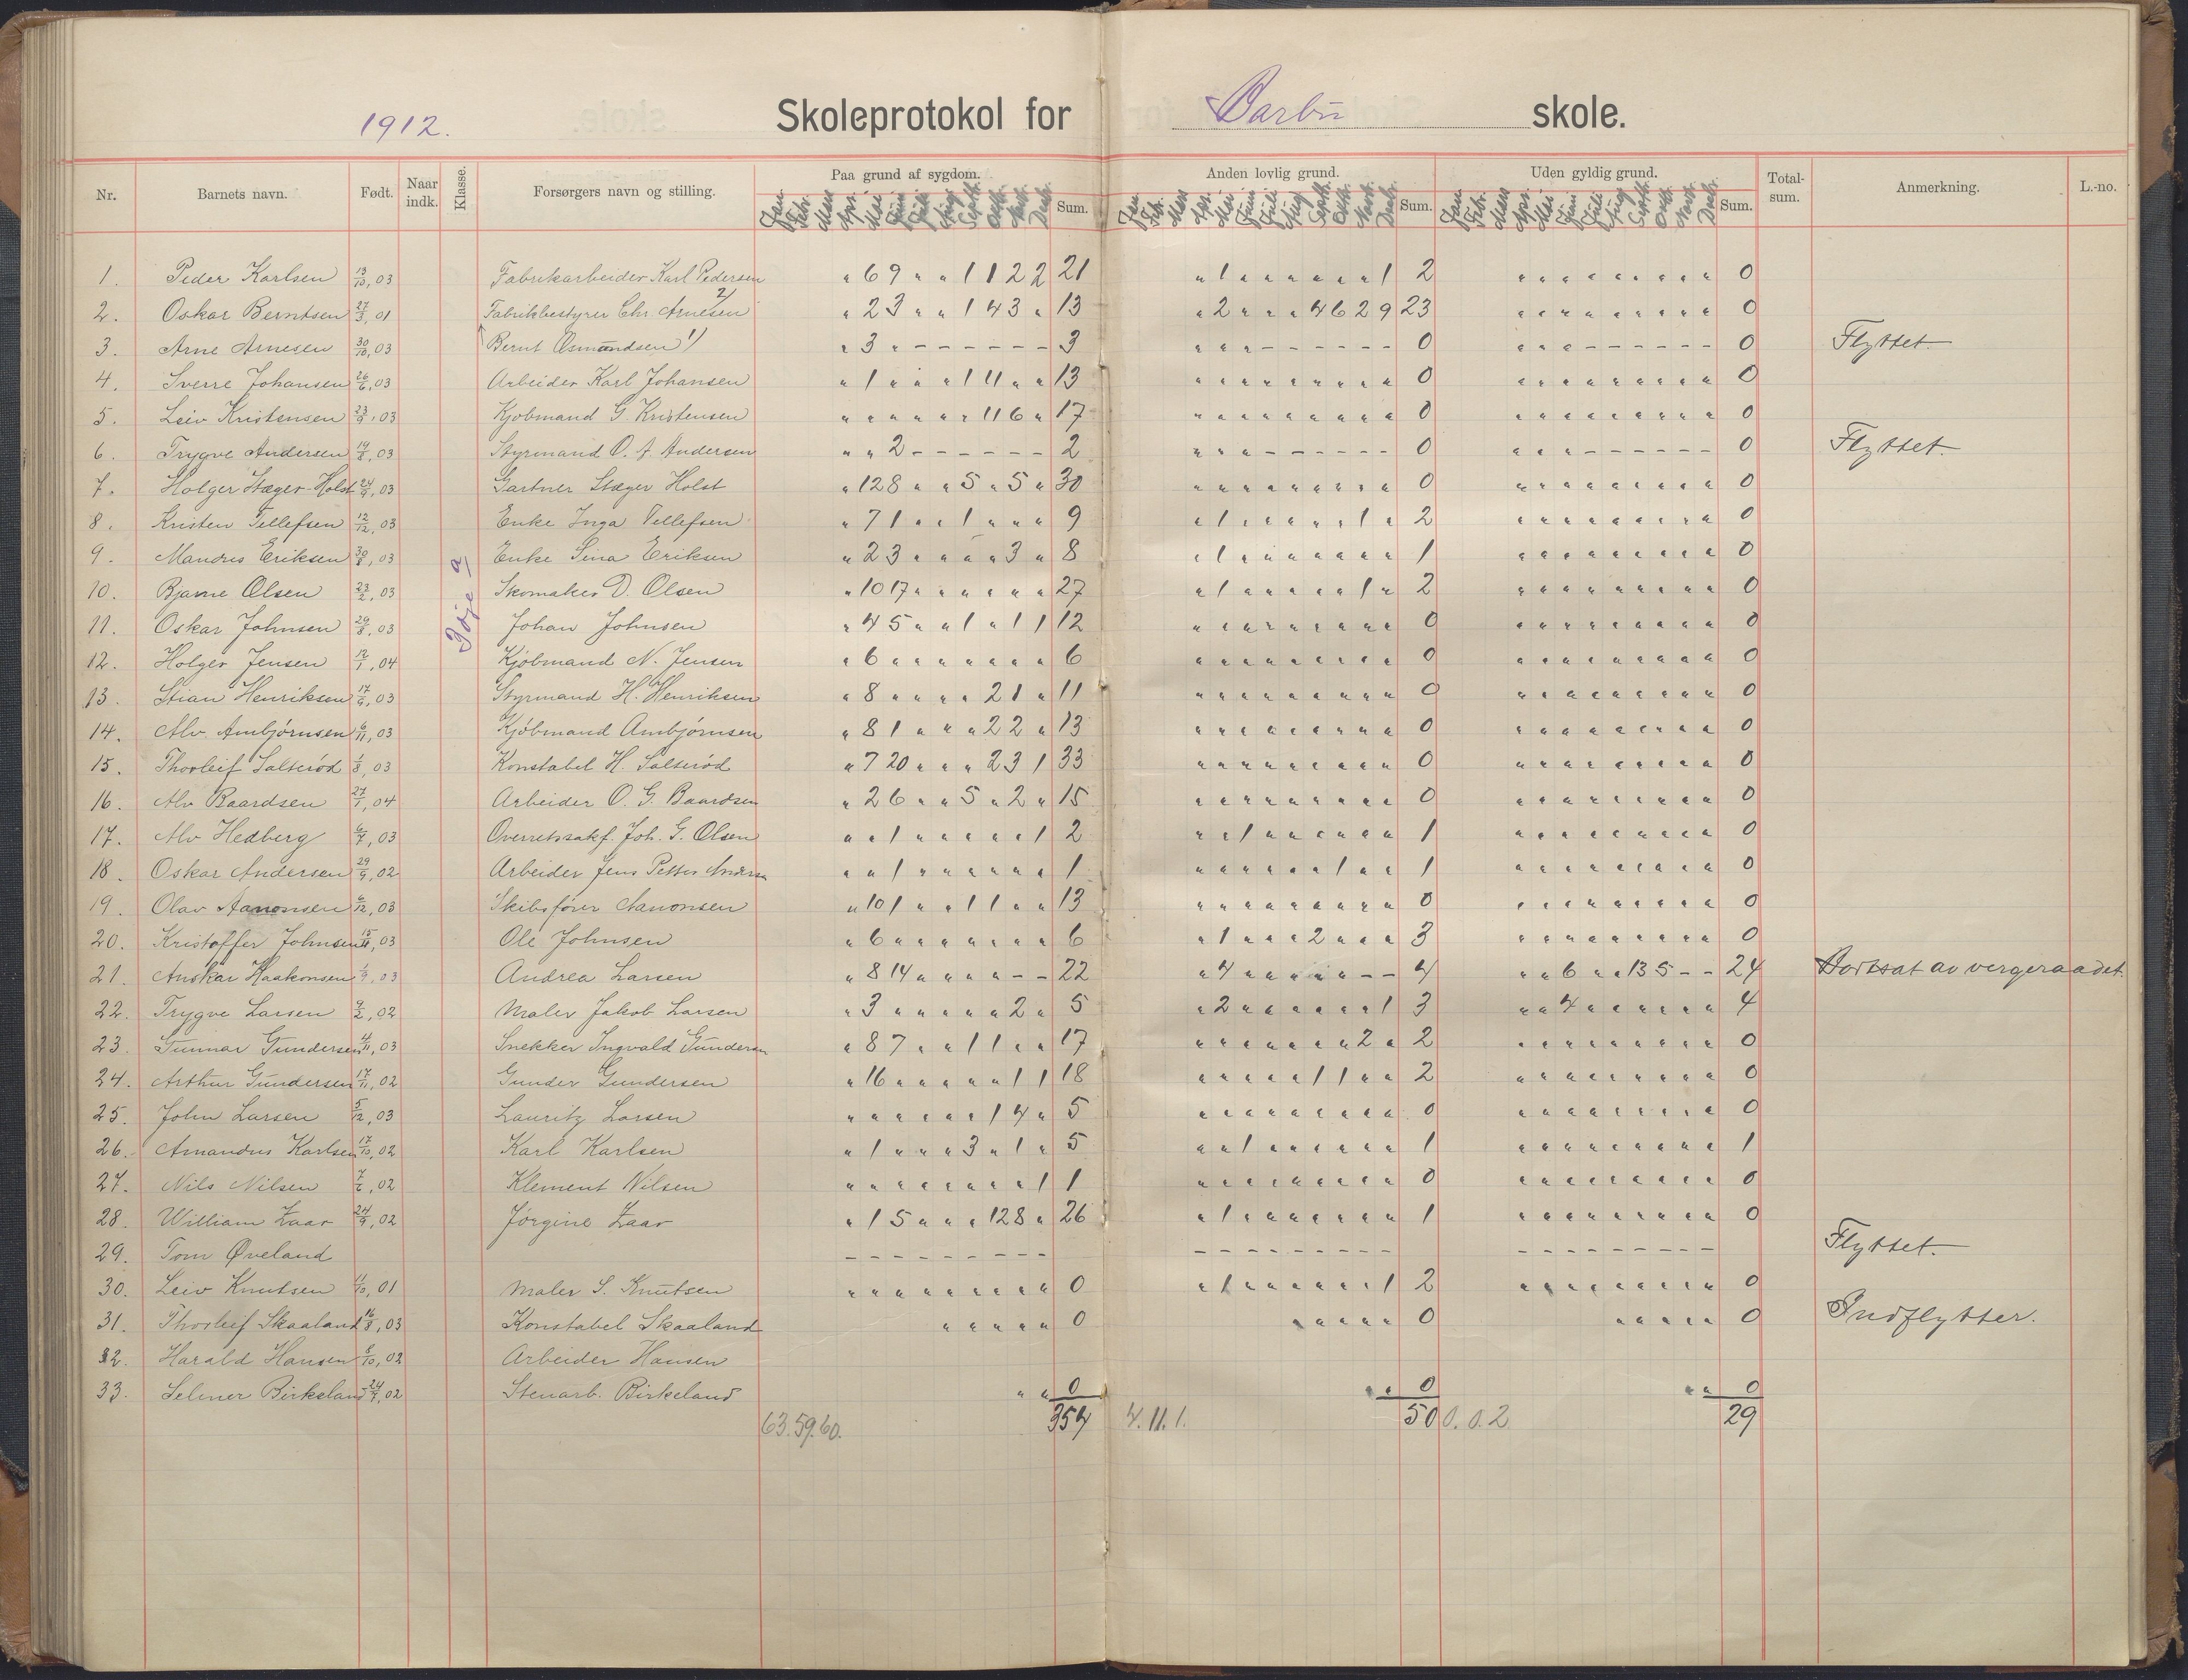 1912. Skoleprotokol for Barbu skole.
Nr. Barnets navn. Født. Naar indk. Klasse. Forsørgers navn og stilling. Paa grund af sygdom. Sum. Anden lovlig grund. Sum. Uden gyldig grund. Sum. Total-sum. Anmerkning. L.-no.
Jan. Feb. Mar. Apr. Mai Juni Juli Aug. Septb. Oktb. Novb. Decb. Jan. Feb. Mar. Apr. Mai Juni Juli Aug. Septb. Oktb. Novb. Decb. Jan. Feb. Mar. Apr. Mai Juni Juli Aug. Septb. Oktb. Novb. Decb.
1. Peder Karlsen 13/10, 03 Fabrikarbeider Karl Pedersen " 6 9 " " 1 1 2 2 21 " 1 " " " " " " 1 2 " " " " " " " " " 0
2. Oskar Berntsen 27/3, 01 Fabrikbestyrer Chr. Arnesen 2) " 2 3 " " 1 4 3 " 13 " 2 " " " 4 6 2 9 23 " " " " " " " " " 0
3. Arne Arnesen 30/10, 03 Bernt Osmundsen 1) " 3 " - - - - - - 3 " " " - - - - - - 0 " " " - - - - - - 0 Flyttet
4. Sverre Johansen 26/6, 03 Arbeider Karl Johansen " 1 " " " 1 11 " " 13 " " " " " " " " " 0 " " " " " " " " " 0
5. Leiv Kristensen 23/9, 03 Kjøbmand G. Kristensen " " " " " " 11 6 " 17 " " " " " " " " " 0 " " " " " " " " " 0
6. Trygve Andersen 19/8, 03 Styrmand O. A. Andersen " " 2 - - - - - - 2 " " " - - - - - - 0 " " " - - - - - - 0 Flyttet
7. Holger Stæger-Holst 24/9, 03 Gartner Stæger Holst " 12 8 " " 5 " 5 " 30 " " " " " " " " " 0 " " " " " " " " " 0
8. Kristen Tellefsen 12/12, 03 Enke Inga Tellefsen " 7 1 " " 1 " " " 9 " 1 " " " " " 1 " 2 " " " " " " " " " 0
9. Mandus Eriksen 30/8, 03 Enke Sina Eriksen " 2 3 " " " " 3 " 8 " 1 " " " " " " " 1 " " " " " " " " " 0
10. Bjarne Olsen 23/2, 03 Skomaker D. Olsen " 10 17 " " " " " " 27 " 1 " " " " " 1 " 2 " " " " " " " " " 0
11. Oskar Johnsen 29/8, 03 Johan Johnsen " 4 5 " " 1 " 1 1 12 " " " " " " " " " 0 " " " " " " " " " 0
12. Holger Jensen 12/1, 04 Kjøbmand N. Jensen " 6 " " " " " " " 6 " " " " " " " " " 0 " " " " " " " " " 0
13. Stian Henriksen 17/6, 03 Styrmand H. Henriksen " 8 " " " " 2 1 " 11 " " " " " " " " " 0 " " " " " " " " " 0
14. Alv Ambjørnsen 6/11, 03 Kjøbmand Ambjørnsen " 8 1 " " " 2 2 " 13 " " " " " " " " " 0 " " " " " " " " " 0
15. Thorleif Salterød 1/8, 03 Konstabel H. Salterød " 7 20 " " " 2 3 1 33 " " " " " " " " " 0 " " " " " " " " " 0
16. Alv Baardsen 27/1, 04 Arbeider O. G. Baardsen " 2 6 " " 5 " 2 " 15 " " " " " " " " " 0 " " " " " " " " " 0
17. Alv Hedberg 6/7, 03 Overretssakf. Joh. G. Olsen " " 1 " " " " " 1 2 " " 1 " " " " " " 1 " " " " " " " " " 0
18. Oskar Andersen 29/9, 02 Arbeider Jens Petter Andersn " " 1 " " " " " " 1 " " " " " " 1 " " 1 " " " " " " " " " 0
19. Olav Aanonsen 6/12, 03 Skibsfører Aanonsen " 10 1 " " 1 1 " " 13 " " " " " " " " " 0 " " " " " " " " " 0
20. Kristoffer Johnsen 15/11, 03 Ole Johnsen " 6 " " " " " " " 6 " 1 " " " 2 " " " 3 " " " " " " " " " 0
21. Anskar Haakonsen 1/3, 03 Andrea Larsen " 8 14 " " " " - - 22 " 4 " " " " " - - 4 " " 6 " " 13 5 - - 24 Bortsat av vergeraadet.
22. Trygve Larsen 9/2, 02 Maler Jakob Larsen " 3 " " " " " 2 " 5 " 2 " " " " " " 1 3 " " 4 " " " " " " 4
23. Gunnar Gundersen 4/11, 03 Snekker Ingvald Gundersen " 8 7 " " 1 1 " " 17 " " " " " " " 2 " 2 " " " " " " " " " 0
24. Arthur Gundersen 17/11, 02 Gunder Gundersen " 16 " " " " " 1 1 18 " " " " " 1 1 " " 2 " " " " " " " " " 0
25. John Larsen 5/12, 03 Lauritz Larsen " " " " " " 1 4 " 5 " " " " " " " " " 0 " " " " " " " " " 0
26. Amandus Karlsen 17/10, 02 Karl Karlsen " 1 " " " 3 " 1 " 5 " " 1 " " " " " " 1 " " " " " " " " " 1
27. Nils Nilsen 7/6, 02 Klement Nilsen " " " " " " " " 1 1 " " " " " " " " " 0 " " " " " " " " " 0
28. William Zaar 24/9, 02 Jørgine Zaar " 1 5 " " " 12 8 " 26 " 1 " " " " " " " 1 " " " " " " " " " 0
29. Tom Øveland - - - - - - - - - - - - - - - - - - - - - - - - - - - Flyttet.
30. Leiv Knutsen 11/10, 01 Maler S. Knutsen " " " " " " " " " 0 " 1 " " " " " " 1 2 " " " " " " " " " 0
31. Thorleif Skaaland 16/8, 03 Konstabel Skaaland " " " " " 0 " " " " " 0 " " " " " 0 Indflytter.
32. Harald Hansen 8/10, 02 Arbeider Hansen
33. Selmer Birkeland 24/7, 02 Stenarb. Birkeland " " 0 " " 0 " " 0
63. 59. 60. 354 4. 11. 1. 50 0. 0. 2 29